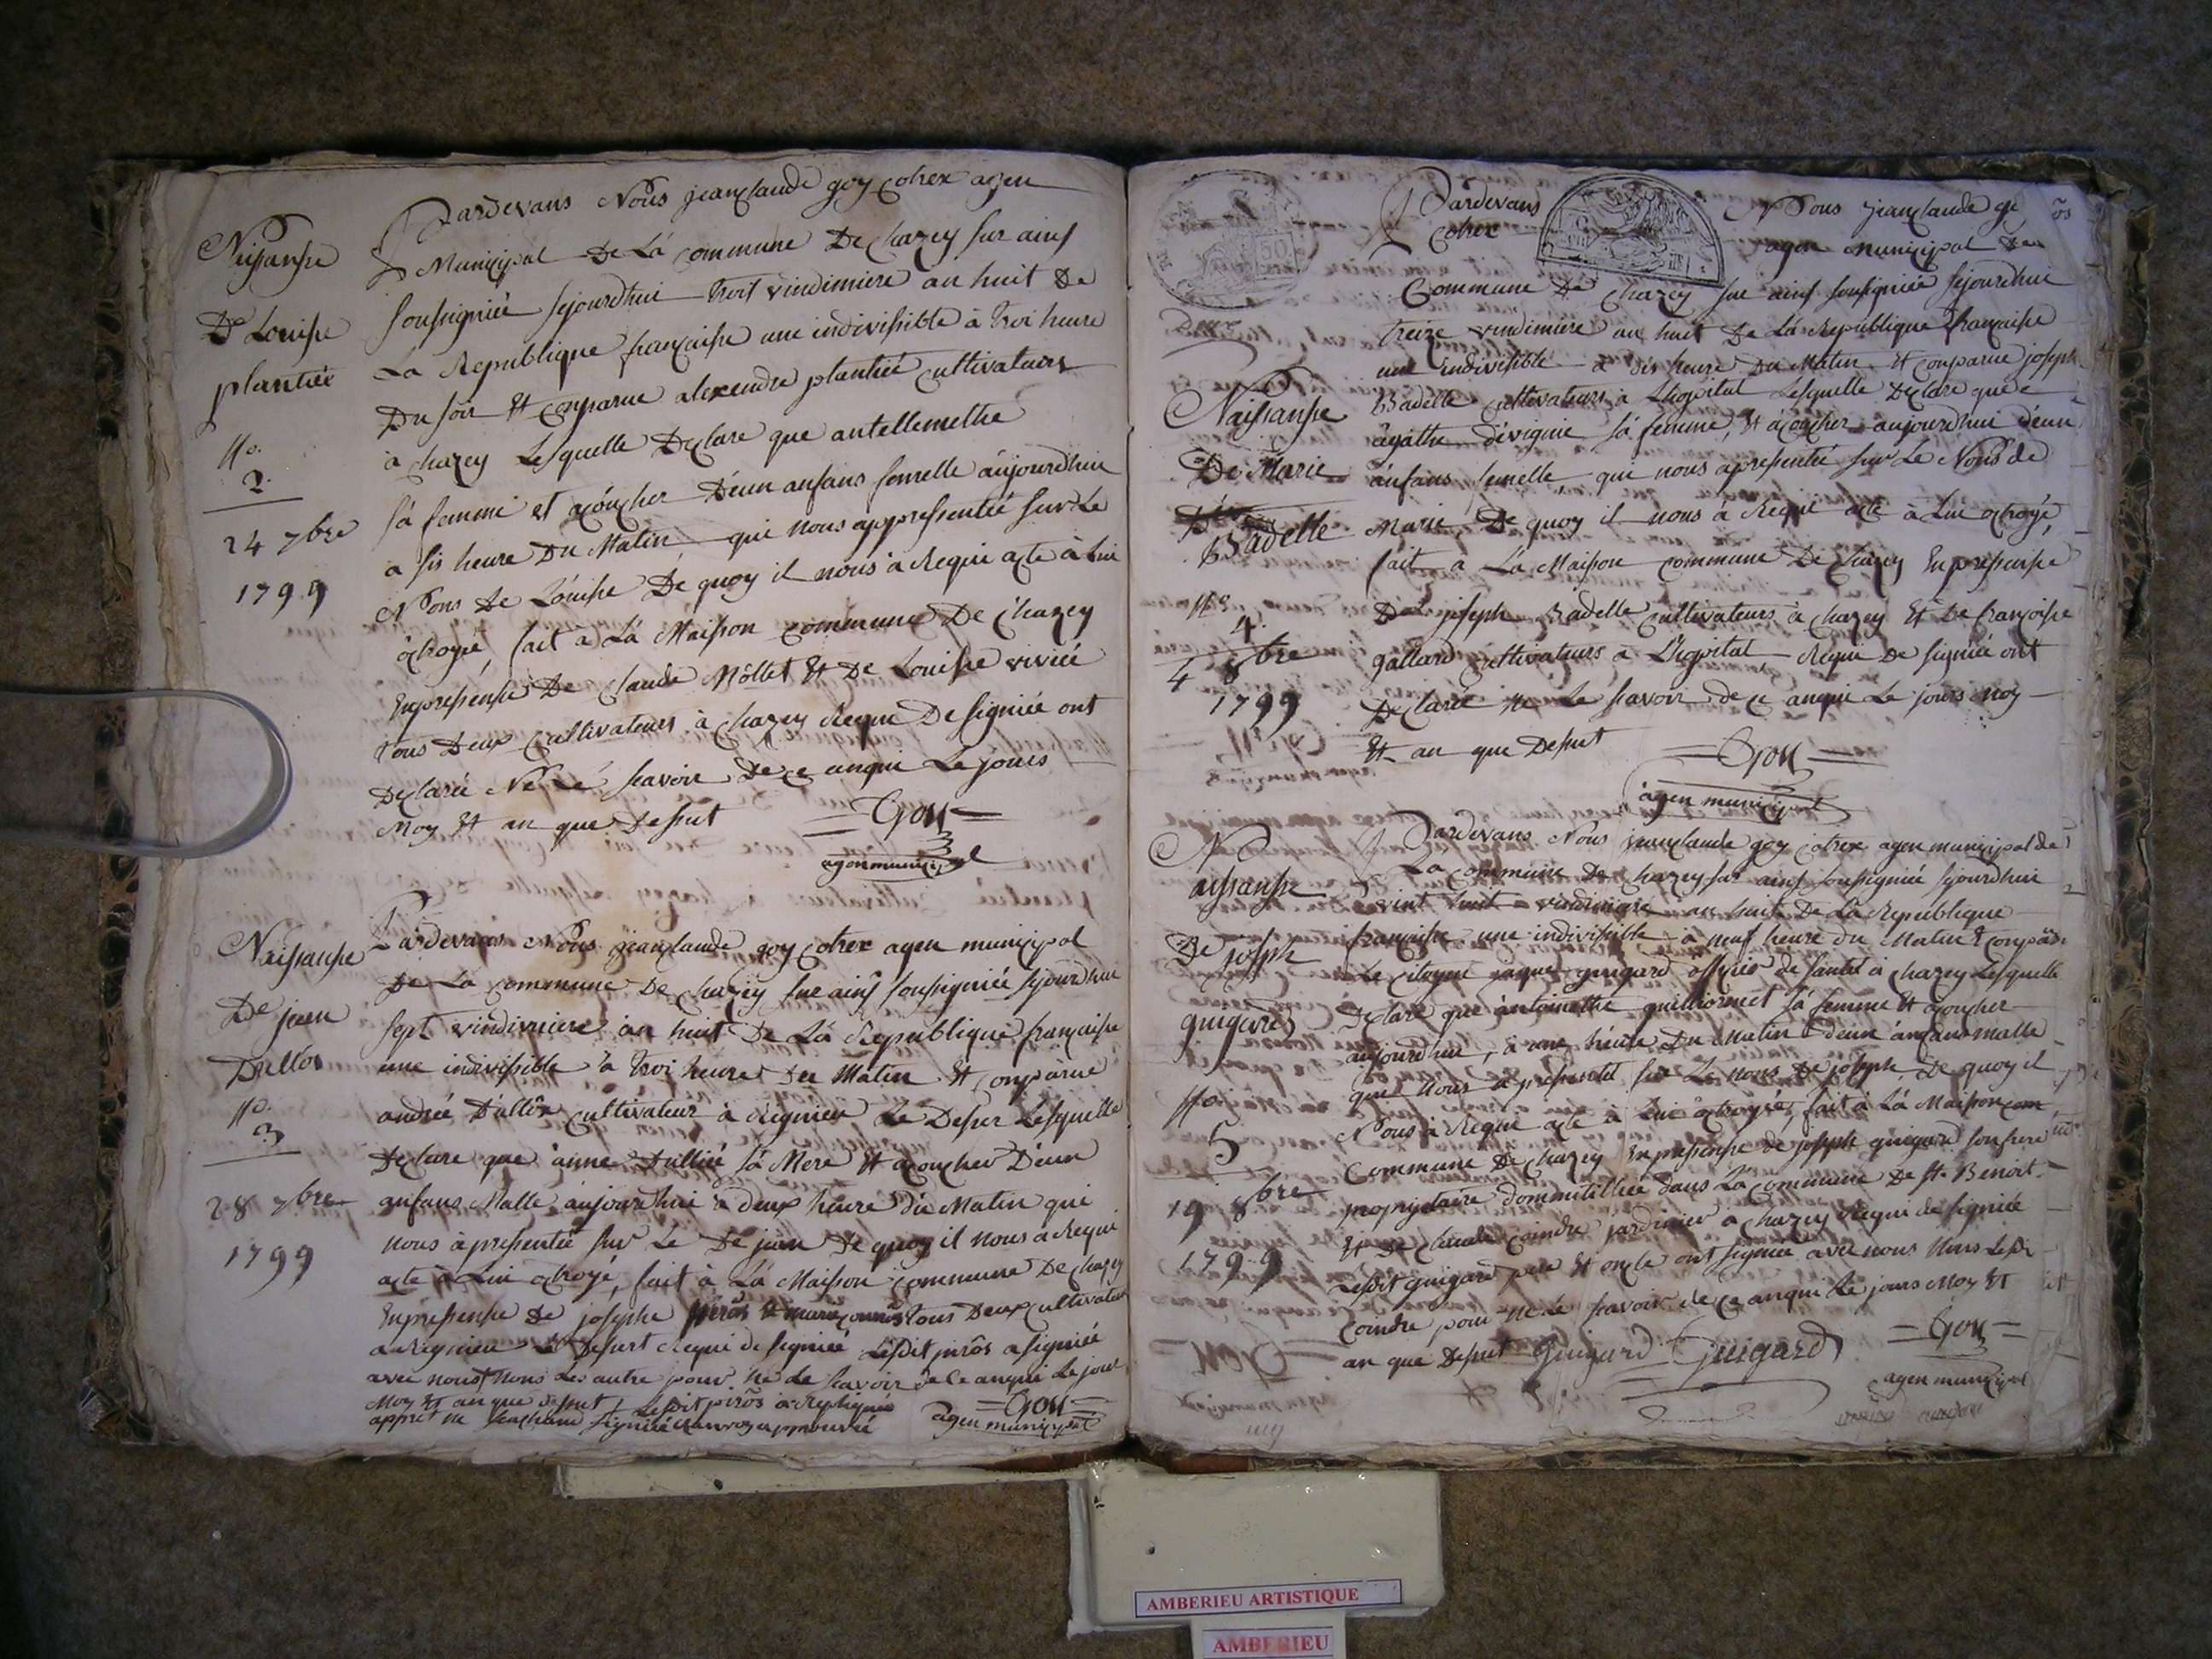 Naissansse
De Louisse
plantiée
No.
2.
24 7bre
1799
Pardevans Nous jeanclaude goy cohex agen
Municipal De La commune De chazey sur ains
soussigniée sejourdhui troit vindimiere an huit De
La Republique francaisse une indivissible à troi heure
Du soir Et conparue alexendre plantiée cultivateurs
à chazey Lesquelle Declare que antellemethe
sa femme et acoucher Deun anfans femelle aujourdhui
a sis heure Du Matin, que nous appressentée sur Le
Nons De Louisse De quoy il nous à Requi acte à Lui
octroyé, fait à Là Maisson commune De chazey
Enpressensse De claude Mollet Et De Louisse viviée
tous Deux cultivateurs à chazey Requi De signiée ont
Declarée Ne Le scavoir De ce anqui Le jours
Moy Et an que Dessut
Goy
agen municipal
Naissansse
De jean
Dullos
No.
3
28 7bre
1799
Pardevans Nous jeanclaude goy cohex agen municipal
De La commune De chazey sur ains soussigniée sejourdhui
sept vindimiere an huit De Là Republique francaisse
une indivissible à troi heure Du Matin Et conparue
andrée Dullos cultivateur à Rignieu Le Deser Lesquelle
Declare que anne Dulliée sa Mere Et acoucher Deun
anfans Malle aujourdhui à deux heure du Matin qui
nous à pressentée sur Le De jean De quoy il nous a Requi
acte à Lui octroyé, fait à Là Maisson commune De chazey
Enpressensse De josephe piros Et marie tous Deux cultivateur
a Rignieu Le Dessert Requi de signiée Lesdit piros a signiée
avec nous Nons Les autre pour ne Le scavoir de ce anqui Le jour
Moy Et an que dessut Lesdit piros à Repliquée
appret ne scachand signiée
Goy
agen municipal
Pardevans Nous jeanclaude
cohex agen municipal De
Commune De chazey sur ains soussigniée sejourdhui
Treize vindimiere an huit De La Republique francaisse
une indivissible à dis heure Du Matin Et conparue joseph
Badelle cultivateurs à Lhopital Lesquelle Declare que
agathe dévignie sa femme, Et acoucher aujourdhui deun
anfans femelle, qui nous apressentée sur Le Nons de
Marie, De quoy il nous à Requi acte à Lui octroyé,
fait a La Maisson commune De chazey Enpressensse
De joseph Badelle cultivateurs à chazey Et De francoisse
gallard cultivateurs à L'hopital Requi De signiée ont
Declarée ne Le scavoir de ce anqui Le jours Moy
Et an que Dessut
Goy
agen municipal
Naissansse
De Marie
Badelle
No
4.
4 8bre
1799
Naissansse
De joseph
guigard
No
5
19 8bre
1799
Pardevans Nous jeanclaude goy cohex agen municipal de
Là commune De chazey sur ains soussigniée sejourdhui
vint huit vindimiere an huit De La Republique
francaisse une indivissible à neuf heure du Matin Et conparue
Le citoyen jaque guigard officié de santé à chazey Lesquelle
Declare que antoinethe guilliermet sa femme Et acoucher
aujourdhui, à une heure Du Matin deun anfans malle
que Nous à pressentée sur Le nons De joseph, De quoy il
Nous à Requi acte à Lui octroyé, fait à Là Maisson com
commune De chazey Enpressensse de joseph guigard son frere
proprietaire dommicilliée dans La commune De St. Benoit
Et De claude coindre jardinier à chazey Requi de signiée
Lesdit guigard pere Et oncle ont signiée avec nous Nons Ledi
coindre pour ne Le scavoir de ce anqui Le jours Moy Et
an que Dessut Guigard Guigard
Goy
agen municipal
AMBERIEU ARTISTIQUE
AMBERIEU